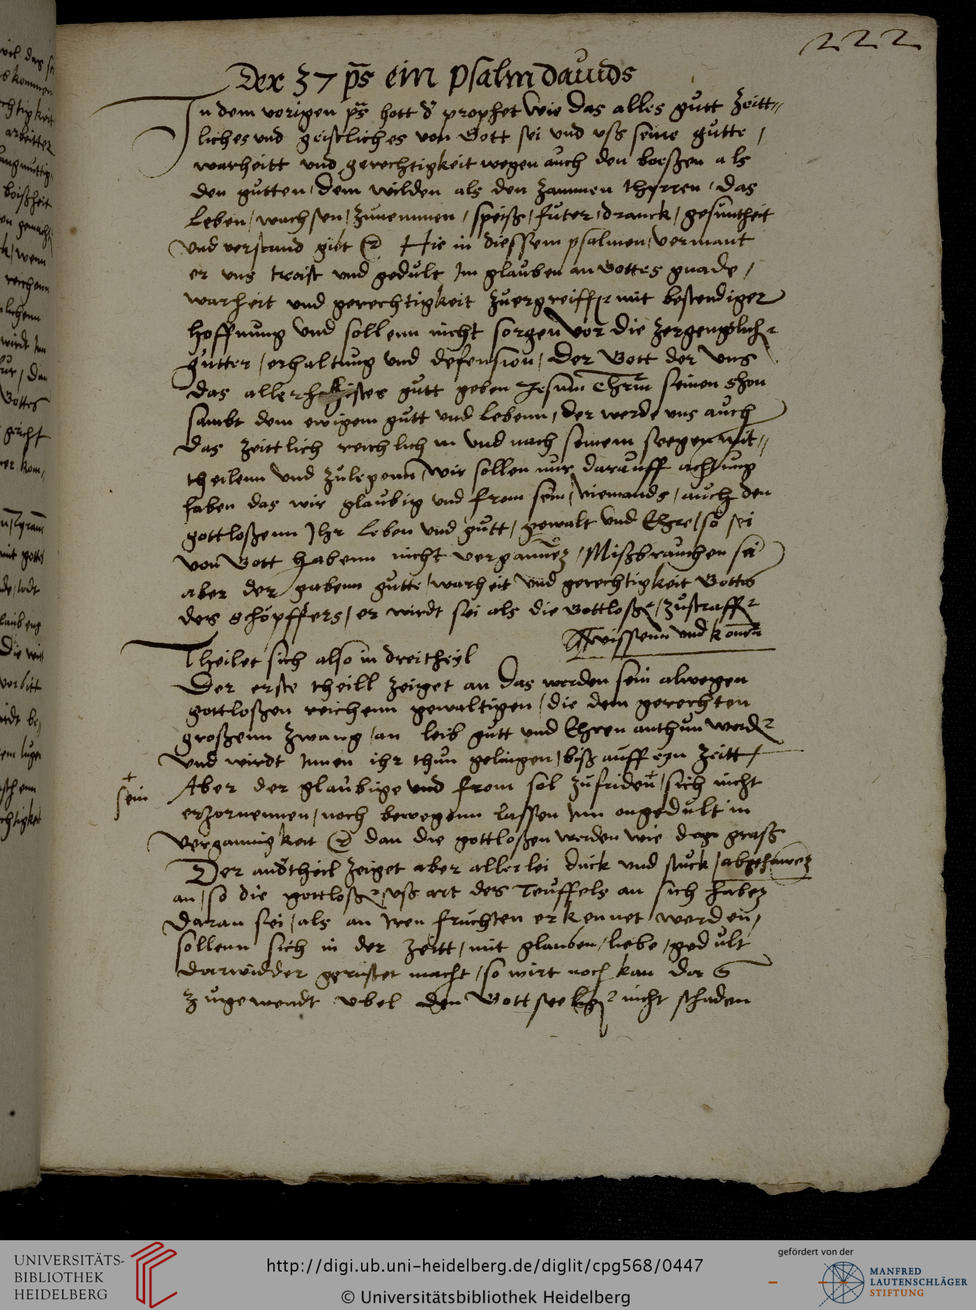 222
Der 37 ps ein psalm dauids
In dem vorigen ps hott d prophet wie das alles gutt Zeitt-
liches und geistliches von Gott sei und uß seine gutte /
warheitt und gerechtigkeit wegen auch den boeßen als
den gutten / dem wilden als den Zammen thyrren / das
Leben / wachssen / Zunemmen / speiß / futer / dranck / gesuntheit
und verstand gibt Hie in diessem psalmen / vermant
er uns troist und gedult Im glauben an Gottes gnade /
warheit und gerechtigkeit Zuergreiffen mit bestendiger
hoffnung und sollenn nicht sorgen vor die Zergenglich
gutter / erhaltung und defension / Der Gott der uns
das aller gutt geben Jesum Chrm seinen shon
sambt dem ewigem gutt und Lebenn / der werde uns auch
das Zeittlich reichlich in und nach seinem seegen mit-
theilenn und Zulegenn / wir sollen nur darauff achtung
haben das wir glaubig und from sein / niemands / auch den
gottloßenn Ihr Leben und gutt / gewalt und Ehre / so sei
von Gott habenn nicht vergannen / Mißbrauchen sei
aber der gabenn gutte / warheit und gerechtigkeit Gottes
des schöpffers / er wirdt sei als die Gottloße / Zustraffen
wissenn und
Theilet sich also in drei theyl
Der erste theill Zeiget an das werden sein alwegen
gottloßen reichenn gewaltigen / die dem gerechten
großenn Zwang / an leib gutt und Ehren anthun werden
und wirdt Innen ihr thun gelingen / biß auff eyn Zeitt
sein
Aber der glaubige und from sol Zufriden / sich nicht
erzornennen / noch bewegenn lassen Inn ongedult in
vergannigkeit dan die gottloßen werden wie das graß
Der and theil Zeiget aber allerlei duck und stuck /
an / so die gottloßen / uß art des Teuffels an sich haben
daran sei / als an Iren fruchten erkennet werden /
sollenn sich in der Zeitt / mit glauben / liebe / gedult
darwidder gerustet macht / so wirt noch kan das
Zugewendt ubel den Gottseelig nicht schaden
UNIVERSITÄTS-
BIBLIOTHEK
HEIDELBERG
http://digi.ub.uni-heidelberg.de/diglit/cpg568/0447
© Universitätsbibliothek Heidelberg
gefördert von der
MANFRED
LAUTENSCHLÄGER
STIFTUNG